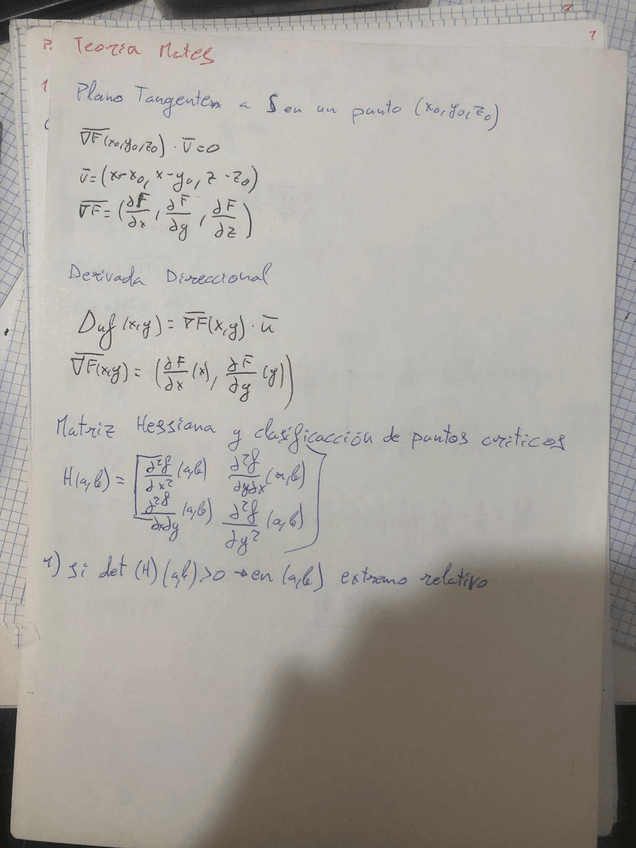 Teoría Mates
Plano Tangente a S en un punto (x₀,y₀,z₀)
∇F(x₀,y₀,z₀) · v̅ = 0
v̅ = (x-x₀, x-y₀, z-z₀)
∇F = (∂F/∂x, ∂F/∂y, ∂F/∂z)
Derivada Direccional
Duf(x,y) = ∇F(x,y) · u̅
∇F(x,y) = (∂F/∂x (x), ∂F/∂y (y))
Matriz Hessiana y clasificacción de puntos criticos
H(a,b) = [∂²f/∂x² (a,b) ∂²f/∂y∂x (a,b)
∂²f/∂x∂y (a,b) ∂²f/∂y² (a,b)]
1) Si det (H)(a,b)>0 → en (a,b) extremo relativo